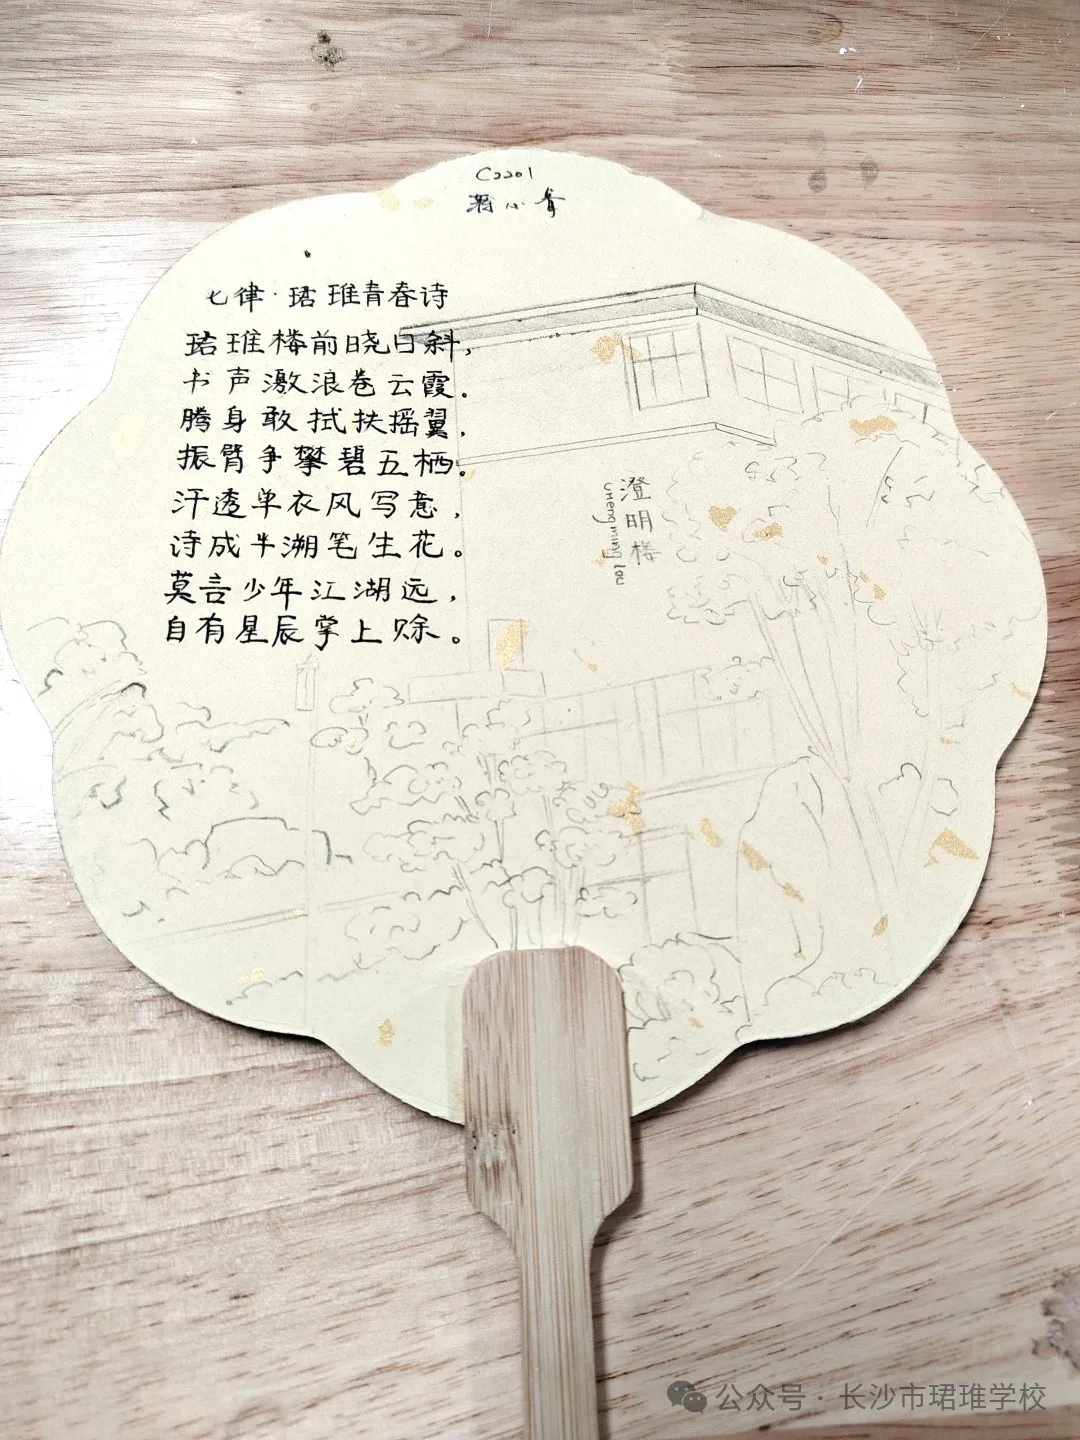 C2201
七律·珺琟青春诗
珺琟楼前晓日斜，
书声激浪卷云霞。
腾身敢拭扶摇翼，
振臂争攀碧五栖。
汗透单衣风写意，
诗成半溯笔生花。
莫言少年江湖远，
自有星辰掌上赊。
澄明楼
chengming lou
公众号·长沙市珺琟学校